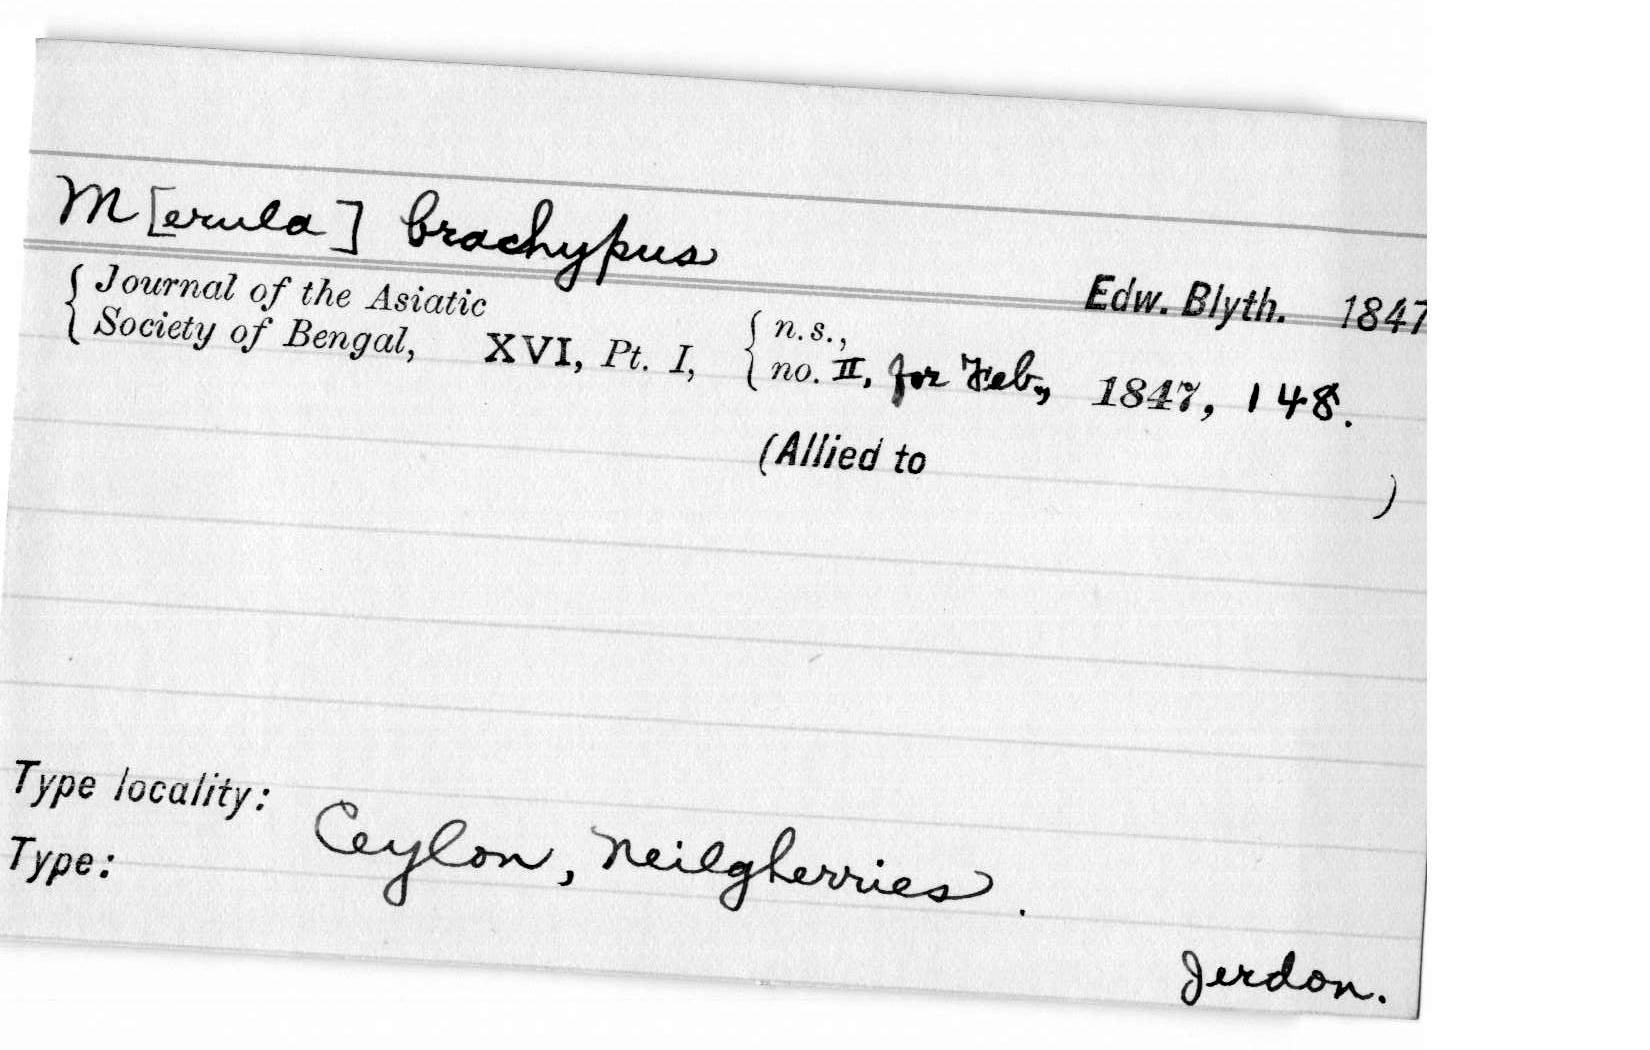 M[erula] brachypus
Edw. Blyth. 1847
{ Journal of the Asiatic
{ Society of Bengal, XVI, Pt. I, { n.s.,
{ no. II, for Feb., 1847, 148.
(Allied to )
Type locality: Ceylon, Neilgherries.
Type:
Jerdon.